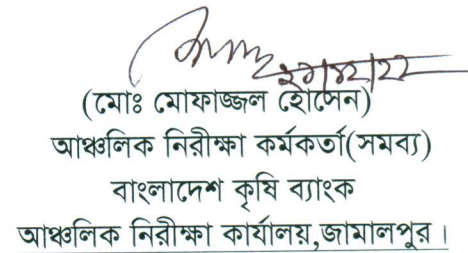 (মোঃ মোফাজ্জল হোসেন)
আঞ্চলিক নিরীক্ষা কর্মকর্তা(সমব্য)
বাংলাদেশ কৃষি ব্যাংক
আঞ্চলিক নিরীক্ষা কার্যালয়,জামালপুর।